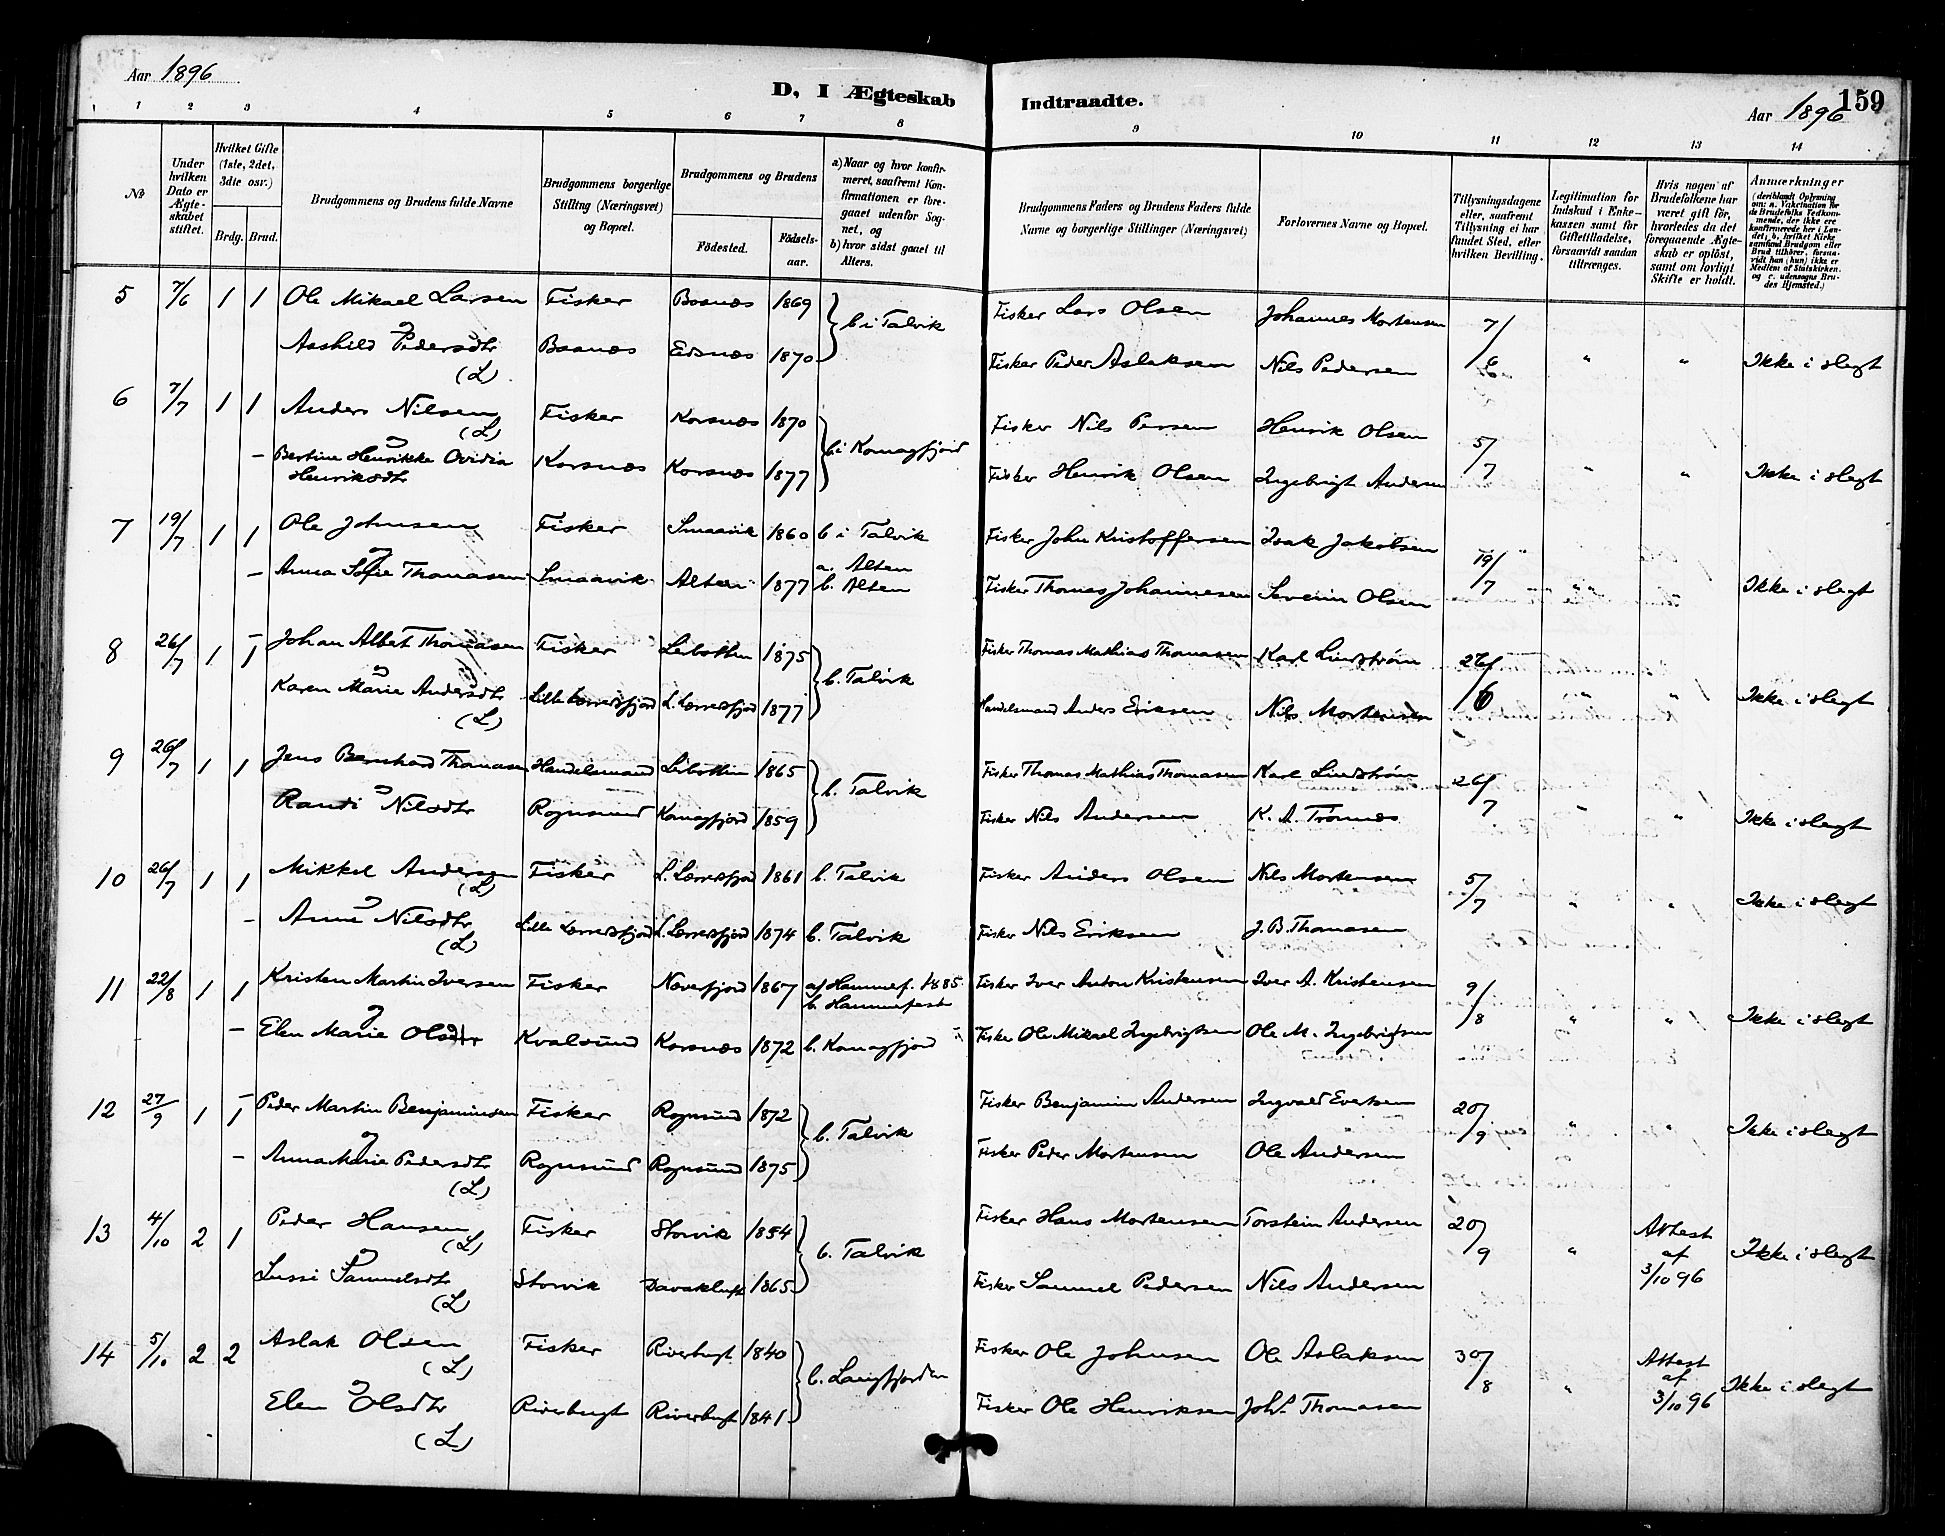 Aar 1896
D, I Ægteskab Indtraadte.
Aar 1896 159
1 2 3 4 5 6 7 8 9 10 11 12 13 14
No
Under hvilken Dato er Ægteskabet stiftet.
Hvilket Gifte (1ste, 2det, 3die osv.)
Brdg. Brud.
Brudgommens og Brudens fulde Navne
Brudgommens borgerlige Stilling (Næringsvei) og Bopæl.
Brudgommens og Brudens
Födested. Födsels-aar.
a) Naar og hvor konfirmeret, saafremt Konfirmationen er foregaaet udenfor Sognet, og
b) hvor sidst gaaet til Alters.
Brudgommens Faders og Brudens Faders fulde Navne og borgerlige Stillinger (Næringsvei)
Forlovernes Navne og Bopæl.
Tillysningsdagene eller, saafremt Tillysning ei har fundet Sted, efter hvilken Bevilling.
Legitimation for Indskud i Enkekassen samt for Giftetilladelse, forsaavidt saadan tiltrænges.
Hvis nogen af Brudefolkene har været gift før, hvorledes da det foregaaende Ægteskab er opløst, samt om lovligt Skifte er holdt.
Anmærkninger (deriblandt Oplysning om: a. Vakcination for de Brudefolks Vedkommende, der ikke ere konfirmerede her i Landet; b. hvilket Kirkesamfund Brudgom eller Brud tilhører, forsaavidt han (hun) ikke er Medlem af Statskirken, og c. udensogns Brudes Hjemsted.)
5 7/6 1 1 Ole Mikael Larsen Fisker Bosnæs 1869 b i Talvik Fisker Lars Olsen Johannes Mortensen 7/6
Aashild Pedersdtr (L) Bosnæs Eidsnæs 1870 Fisker Peder Aslaksen Nils Pedersen " " Ikke i slegt
6 7/7 1 1 Anders Nilsen (L) Fisker Korsnæs 1870 b i Komagfjord Fisker Nils Persen Henrik Olsen 5/7
Bertine Henrikke Ovidia Henriksdtr Korsnæs Korsnæs 1877 Fisker Henrik Olsen Ingebrigt Andersen " " Ikke i slegt
7 19/7 1 1 Ole Johnsen Fisker Smaavik 1860 b i Talvik Fisker John Kristoffersen Isak Jakobsen 19/7
Anna Sofie Thomasen Smaavik Alten 1877 a. Alten b. Alten Fisker Thomas Johannesen Severin Olsen " " Ikke i slegt
8 26/7 1 1 Johan Albet Thomasen Fisker Leirbotten 1875 b. Talvik Fisker Thomas Mathias Thomasen Karl Lindstrøm 26/6
Karen Marie Andersdtr (L) Lille Lerresfjord L. Lerresfjord 1877 Handelsmand Anders Eriksen Nils Mortensen " " Ikke i slegt
9 26/7 1 1 Jens Bernhard Thomasen Handelsmand Leirbotten 1865 b. Talvik Fisker Thomas Mathias Thomasen Karl Lindstrøm 26/7
Randi Nilsdtr Rognsund Komagfjord 1859 Fisker Nils Andersen K. A. Trønnes " " Ikke i slegt
10 26/7 1 1 Mikkel Andersen (L) Fisker L. Lerresfjord 1861 b. Talvik Fisker Anders Olsen Nils Mortensen 5/7
Anne Nilsdtr (L) Lille Lerresfjord L. Lerresfjord 1874 b. Talvik Fisker Nils Eriksen J. B. Thomasen " " Ikke i slegt
11 22/8 1 1 Kristen Martin Iversen Fisker Næverfjord 1867 a/ Hammerf. 1885 b. Hammerfest Fisker Iver Anton Kristensen Iver A. Kristensen 9/8
Elen Marie Olsdtr Kvalsund Korsnæs 1872 b. Komagfjord Fisker Ole Mikael Ingebrigtsen Ole M. Ingebrigtsen " " Ikke i slegt
12 27/9 1 1 Peder Martin Benjaminsen Fisker Rognsund 1872 b. Talvik Fisker Benjamin Andersen Ingvald Evertsen 20/9
Anna Marie Pedersdtr (L) Rognsund Rognsund 1875 Fisker Peder Mortensen Ole Andersen " " Ikke i slegt
13 4/10 2 1 Peder Hansen (L) Fisker Storvik 1854 b. Talvik Fisker Hans Mortensen Torstein Andersen 20/9 Attest af 3/10 96
Lussi Samuelsdtr (L) Storvik Davakluft 1865 Fisker Samuel Pedersen Nils Andersen " Ikke i slegt
14 5/10 2 2 Aslak Olsen (L) Fisker Riverbugt 1840 b. Langfjorden Fisker Ole Johnsen Ole Aslaksen 30/8 Attest af 3/10 96
Elen Olsdtr (L) Riverbugt Riverbugt 1841 Fisker Ole Henriksen Johs. Thomasen " Ikke i slegt